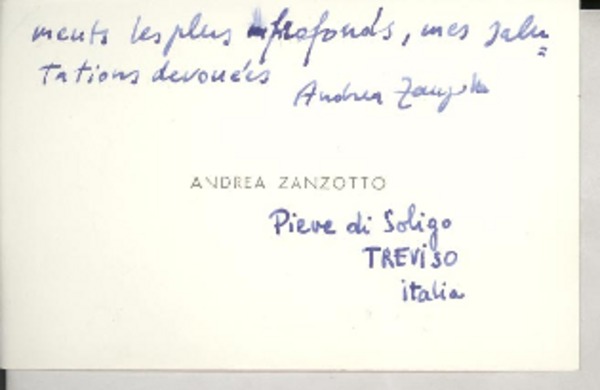 ments les plus profonds, mes salu=
tations devouées
Andrea Zanzotto
ANDREA ZANZOTTO
Pieve di Soligo
TREViSO
italia